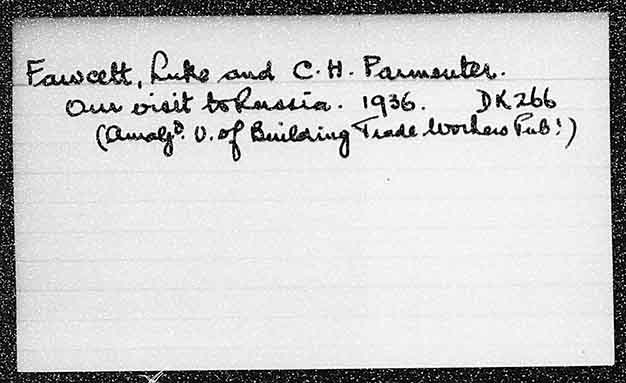 Fawcett, Luke and C. H. Parmenter.
Our visit to Russia. 1936. DK266
(Amalgd. U. of Building Trade Workers Pub!)